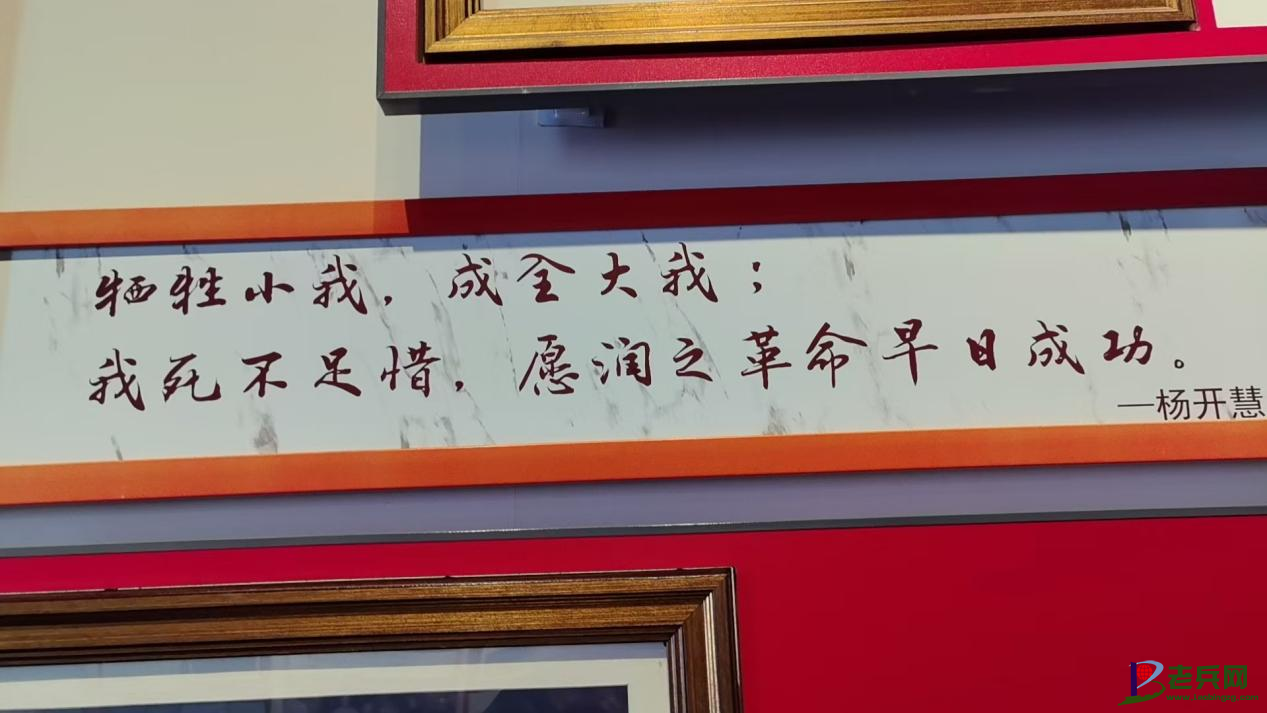 牺牲小我，成全大我；
我死不足惜，愿润之革命早日成功。
—杨开慧
老兵网